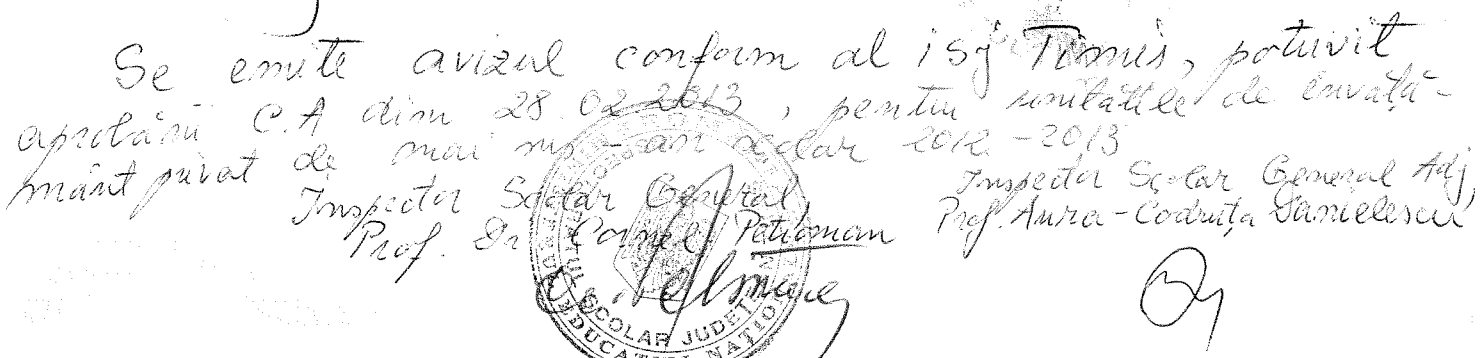 Se emite avizul conform al isj Timis, potrivit
aprobării C.A din 28.02.2013, pentru unitățile de învăță-
mânt privat de mai sus - an școlar 2012 - 2013
Inspector Școlar General,
Prof. Dr Cornel Petroman
Inspector Școlar General Adj,
Prof. Aura-Codruța Danielescu
ȘCOLAR JUDEȚ
EDUCAȚIEI NAȚION